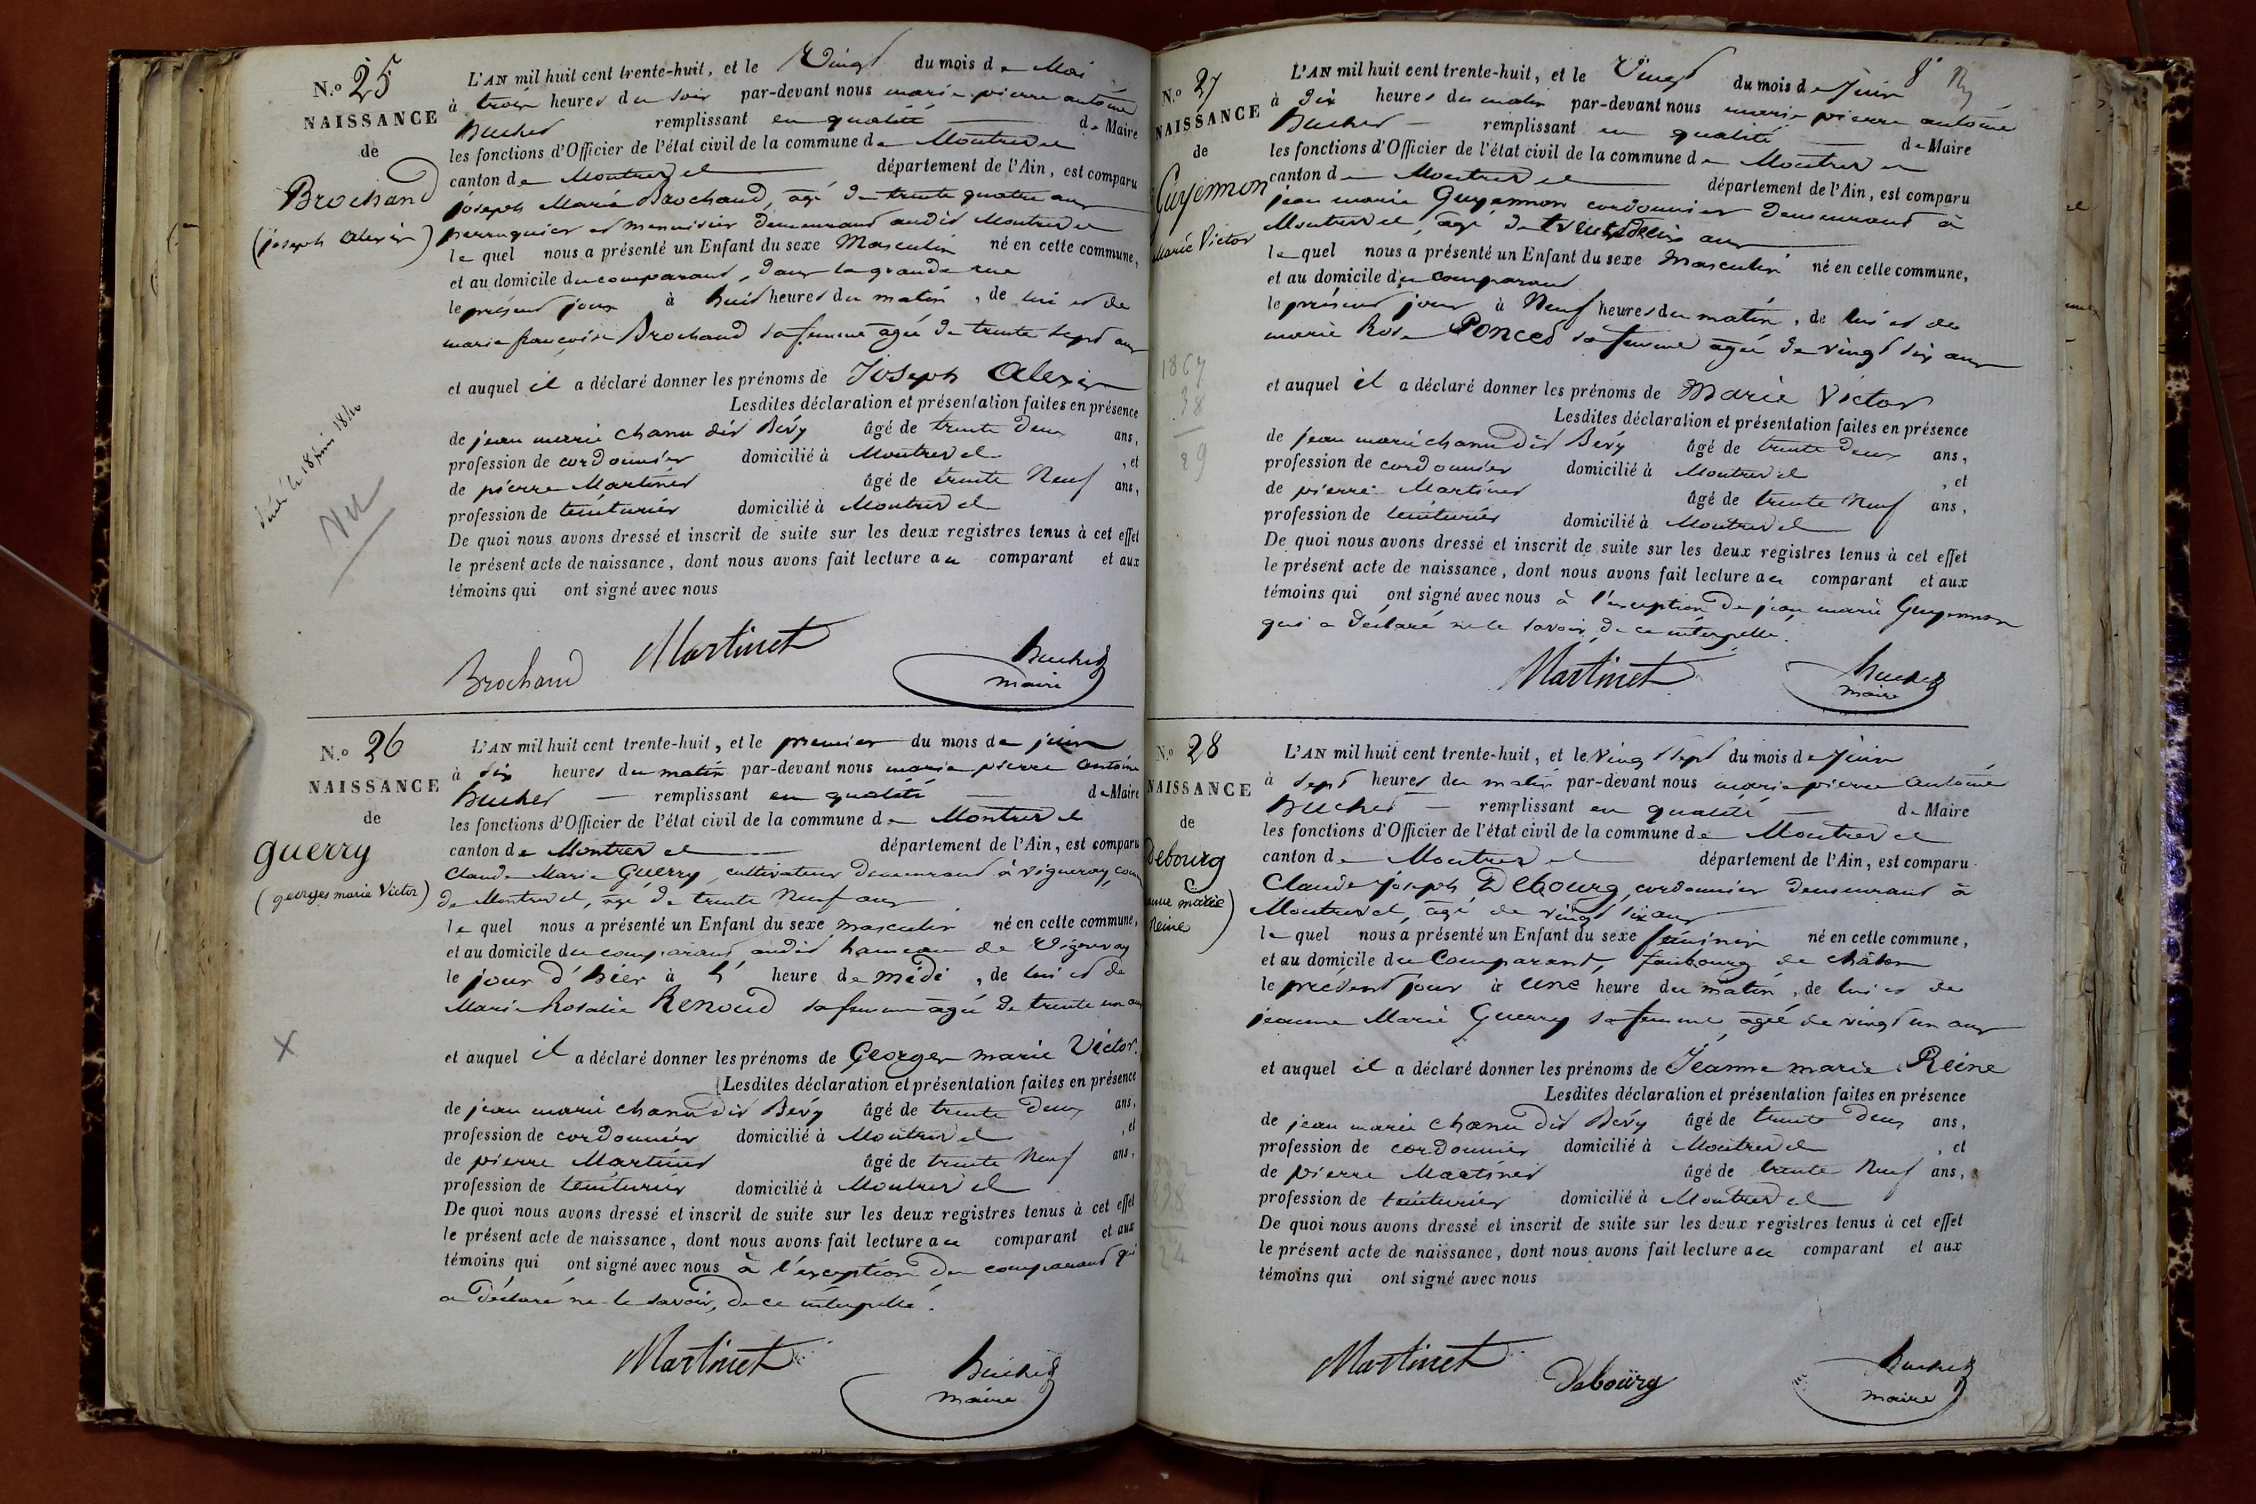 N.º 25
NAISSANCE
de
Brochand
(joseph alexis)
L'AN mil huit cent trente-huit, et le Vingt du mois de Mai
à trois heures du soir par-devant nous marie pierre antoine
Buchet remplissant en qualité de Maire
les fonctions d'Officier de l'état civil de la commune de Montrevel
canton de Montrevel département de l'Ain, est comparu
joseph Marie Brochand, agé de trente quatre ans
perruquier et menuisier demeurant audit Montrevel
lequel nous a présenté un Enfant du sexe Masculin né en cette commune,
et au domicile du comparant, dans la grande rue
le présent jour à huit heures du matin, de lui et de
marie françoise Brochand sa femme agée de trente sept ans
et auquel il a déclaré donner les prénoms de Joseph Alexis
Lesdites déclaration et présentation faites en présence
de jean marie chanu dit Bévy âgé de trente deux ans,
profession de cordonnier domicilié à Montrevel, et
de pierre Martinet âgé de trente Neuf ans,
profession de teinturier domicilié à Montrevel
De quoi nous avons dressé et inscrit de suite sur les deux registres tenus à cet effet
le présent acte de naissance, dont nous avons fait lecture au comparant et aux
témoins qui ont signé avec nous
le 18 juin
Vu
Brochand Martinet Buchet
maire
N.º 26
NAISSANCE
de
guerry
(georges marie Victor)
L'AN mil huit cent trente-huit, et le premier du mois de juin
à dix heures du matin par-devant nous marie pierre antoine
Buchet remplissant en qualité de Maire
les fonctions d'Officier de l'état civil de la commune de Montrevel
canton de Montrevel département de l'Ain, est comparu
Claude Marie Guerry, cultivateur demeurant à
de Montrevel, agé de trente Neuf ans
lequel nous a présenté un Enfant du sexe masculin né en cette commune,
et au domicile du comparant audit hameau de
le jour d'hier à heure de midi, de lui et de
Marie Rosalie Renoud sa femme agée de trente un ans
et auquel il a déclaré donner les prénoms de Georges marie Victor.
Lesdites déclaration et présentation faites en présence
de jean marie chanu dit Bévy âgé de trente deux ans,
profession de cordonnier domicilié à Montrevel, et
de pierre Martinet âgé de trente Neuf ans,
profession de teinturier domicilié à Montrevel
De quoi nous avons dressé et inscrit de suite sur les deux registres tenus à cet effet
le présent acte de naissance, dont nous avons fait lecture au comparant et aux
témoins qui ont signé avec nous à l'exception du comparant qui
a déclaré ne le savoir, de ce interpellé.
Martinet Buchet
maire
N.º 27
NAISSANCE
de
Guyennon
marie Victor
L'AN mil huit cent trente-huit, et le Vingt du mois de Juin
à dix heures du matin par-devant nous marie pierre antoine
Buchet remplissant en qualité de Maire
les fonctions d'Officier de l'état civil de la commune de Montrevel
canton de Montrevel département de l'Ain, est comparu
jean marie Guyennon cordonnier demeurant à
Montrevel, agé de ans
lequel nous a présenté un Enfant du sexe Masculin né en cette commune,
et au domicile du comparant
le présent jour à Neuf heures du matin, de lui et de
marie Rose Poncet sa femme agée de vingt six ans
et auquel il a déclaré donner les prénoms de Marie Victor
Lesdites déclaration et présentation faites en présence
de jean marie chanu dit Bévy âgé de trente deux ans,
profession de cordonnier domicilié à Montrevel, et
de pierre Martinet âgé de trente Neuf ans,
profession de teinturier domicilié à Montrevel
De quoi nous avons dressé et inscrit de suite sur les deux registres tenus à cet effet
le présent acte de naissance, dont nous avons fait lecture au comparant et aux
témoins qui ont signé avec nous à l'exception de jean marie Guyennon
qui a déclaré ne le savoir, de ce interpellé.
1867
38
29
Martinet Buchet
maire
N.º 28
NAISSANCE
de
Debourg
jeanne marie
Reine
L'AN mil huit cent trente-huit, et le vingt sept du mois de Juin
à sept heures du matin par-devant nous marie pierre antoine
Buchet remplissant en qualité de Maire
les fonctions d'Officier de l'état civil de la commune de Montrevel
canton de Montrevel département de l'Ain, est comparu
Claude joseph Debourg, cordonnier demeurant à
Montrevel, agé de vingt six ans
lequel nous a présenté un Enfant du sexe féminin né en cette commune,
et au domicile du Comparant, faubourg de châlon
le présent jour à une heure du matin, de lui et de
jeanne Marie Guerry sa femme, agée de vingt un ans
et auquel il a déclaré donner les prénoms de Jeanne marie Reine
Lesdites déclaration et présentation faites en présence
de jean marie chanu dit Bévy âgé de trente deux ans,
profession de cordonnier domicilié à Montrevel, et
de pierre Martinet âgé de trente Neuf ans,
profession de teinturier domicilié à Montrevel
De quoi nous avons dressé et inscrit de suite sur les deux registres tenus à cet effet
le présent acte de naissance, dont nous avons fait lecture au comparant et aux
témoins qui ont signé avec nous
Martinet Debourg Buchet
maire